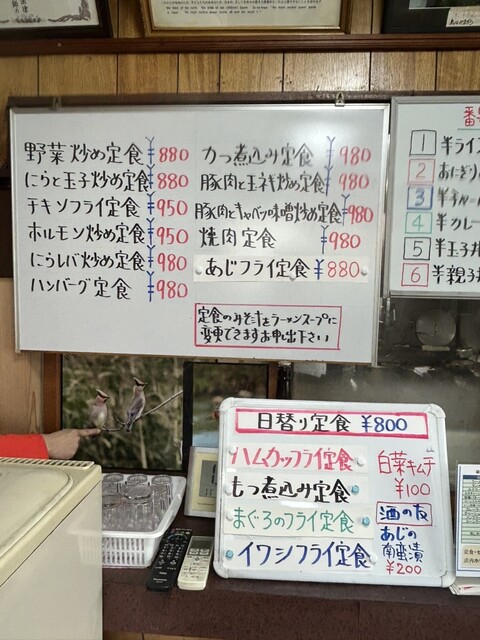 野菜炒め定食 ¥880
にらと玉子炒め定食 ¥880
チキソフライ定食 ¥950
ホルモン炒め定食 ¥950
にらレバ炒め定食 ¥980
ハンバーグ定食 ¥980
かつ煮込み定食 ¥980
豚肉と玉ネギ炒め定食 ¥980
豚肉とキャベツ味噌炒め定食 ¥980
焼肉定食 ¥980
あじフライ定食 ¥880
定食のみそ汁をラーメンスープに
変更できますお申出下さい
1 半ライ
2 おにぎり
3 半チャー
4 半カレー
5 半玉子丼
6 半親子丼
日替り定食 ¥800
ハムカツフライ定食
もつ煮込み定食
まぐろのフライ定食
イワシフライ定食
白菜キムチ
¥100
酒の友
あじの
南蛮漬
¥200